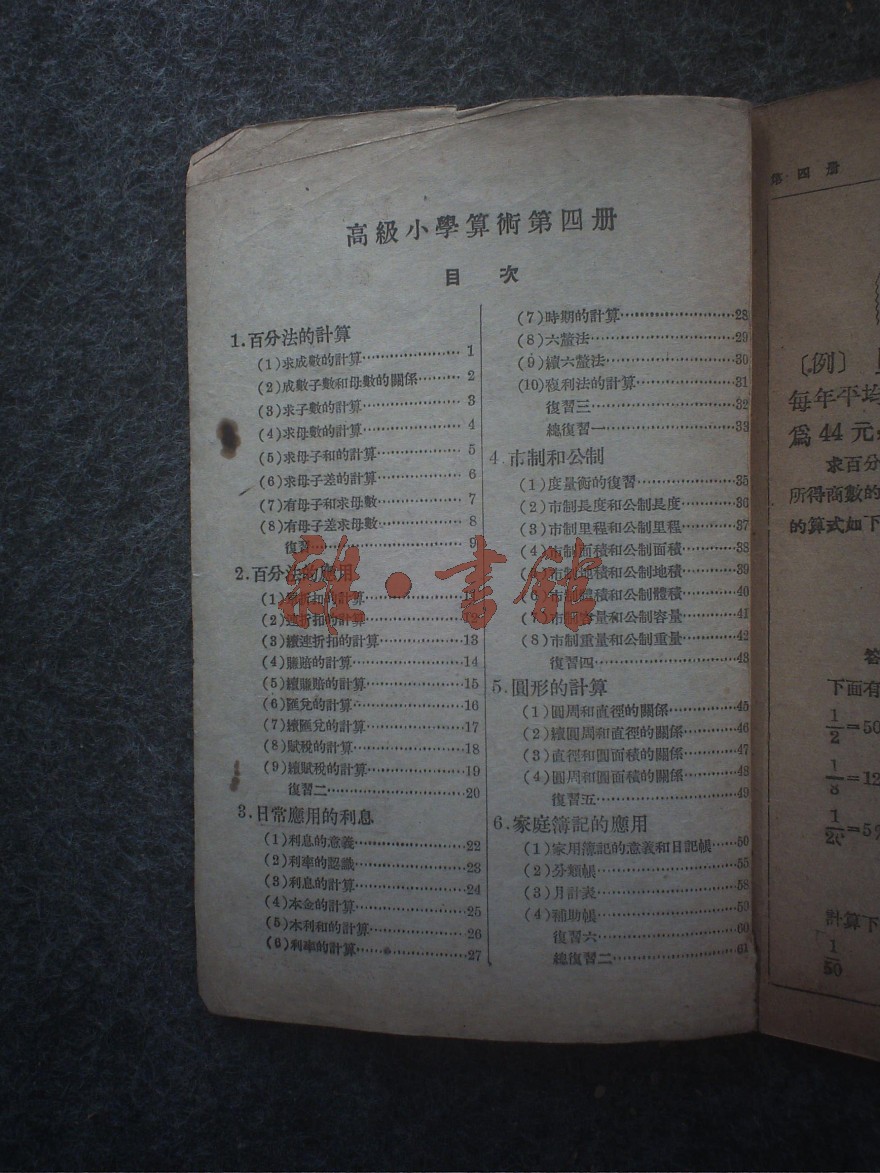 高級小學算術第四册
目 次
1.百分法的計算
(1)求成數的計算………………… 1
(2)成數子數和母數的關係……… 2
(3)求子數的計算………………… 3
(4)求母數的計算………………… 4
(5)求母子和的計算……………… 5
(6)求母子差的計算……………… 6
(7)有母子和求母數……………… 7
(8)有母子差求母數……………… 8
復習一………………………… 9
2.百分法的應用
(1)折扣的計算…………………11
(2)連折扣的計算………………12
(3)續連折扣的計算……………13
(4)賺賠的計算…………………14
(5)續賺賠的計算………………15
(6)匯兌的計算…………………16
(7)續匯兌的計算………………17
(8)賦稅的計算…………………18
(9)續賦稅的計算………………19
復習二…………………………20
3.日常應用的利息
(1)利息的意義…………………22
(2)利率的認識…………………23
(3)利息的計算…………………24
(4)本金的計算…………………25
(5)本利和的計算………………26
(6)利率的計算…………………27
(7)時期的計算…………………28
(8)六釐法………………………29
(9)續六釐法……………………30
(10)複利法的計算………………31
復習三…………………………32
總復習一………………………33
4.市制和公制
(1)度量衡的復習………………35
(2)市制長度和公制長度………36
(3)市制里程和公制里程………37
(4)市制面積和公制面積………38
(5)市制地積和公制地積………39
(6)市制體積和公制體積………40
(7)市制容量和公制容量………41
(8)市制重量和公制重量………42
復習四…………………………43
5.圓形的計算
(1)圓周和直徑的關係…………45
(2)續圓周和直徑的關係………46
(3)直徑和圓面積的關係………47
(4)圓周和圓面積的關係………48
復習五…………………………49
6.家庭簿記的應用
(1)家用簿記的意義和日記帳…50
(2)分類帳………………………55
(3)月計表………………………58
(4)補助帳………………………59
復習六…………………………60
總復習二………………………61
雜·書館
第四册
〔例〕
每年平均
爲44元
求百分
所得商數的
的算式如下
答
下面有
1/2=50
1/8=12
1/20=5%
計算下
1/50